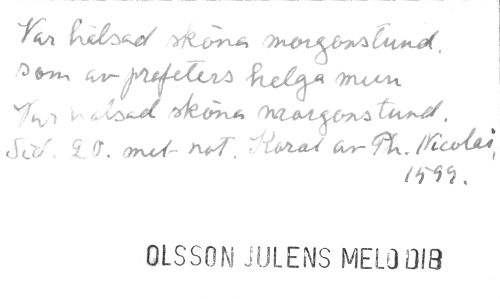 Var hälsad sköna morgonstund.
som av profeters helga mun
Var hälsad sköna morgonstund.
Sid. 20. met not. Koral av Ph. Nicolai,
1599.
OLSSON JULENS MELODIB